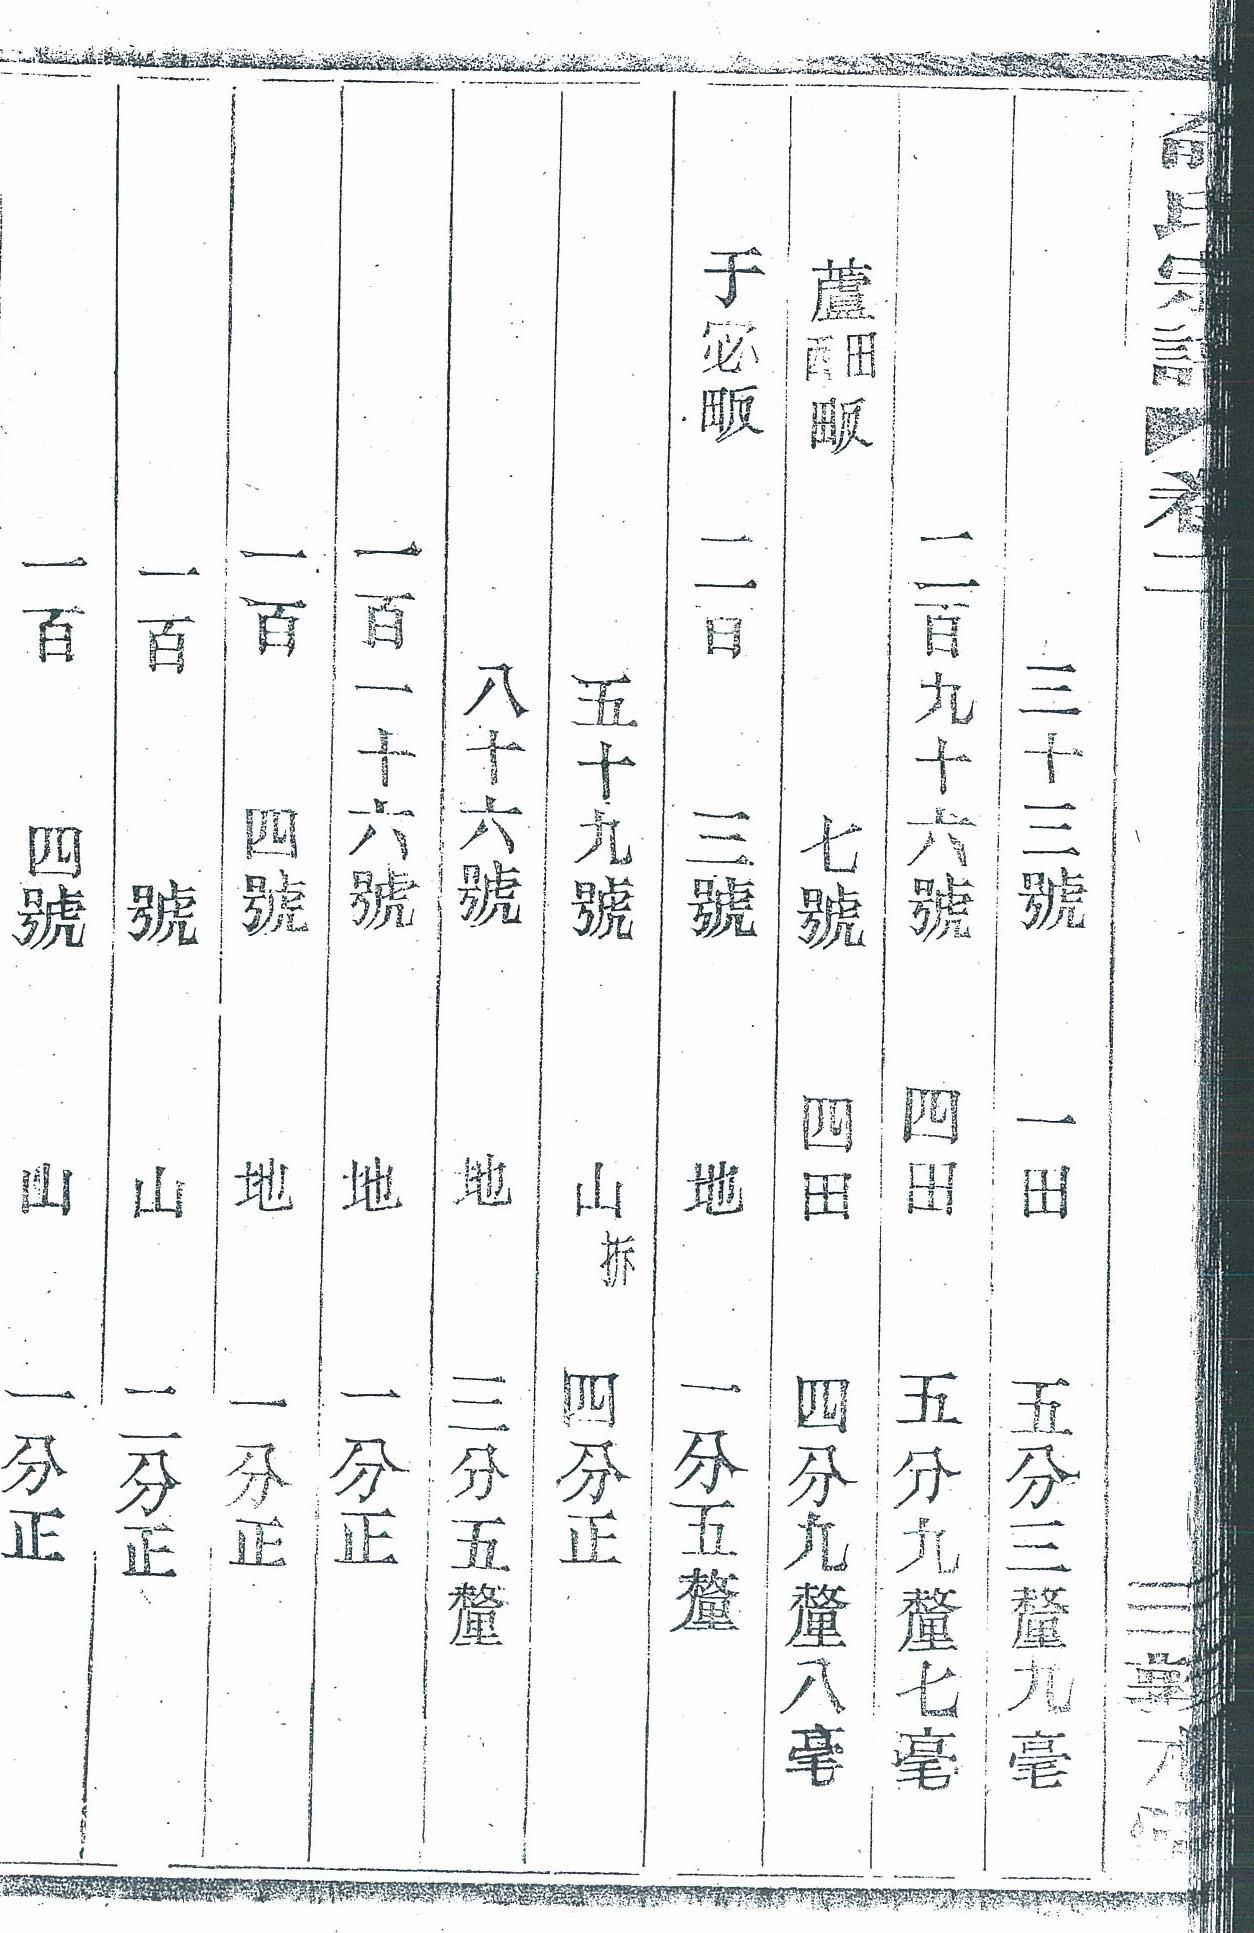 氏宗譜 卷二
三十三號 一田 五分三釐九毫
二百九十六號 四田 五分九釐七毫
蘆田西畈 七號 四田 四分九釐八毫
于宓畈 二百 三號 地 一分五釐
五十九號 山拆 四分正
八十六號 地 三分五釐
一百一十六號 地 一分正
一百 四號 地 一分正
一百 號 山 二分正
一百 四號 山 一分正